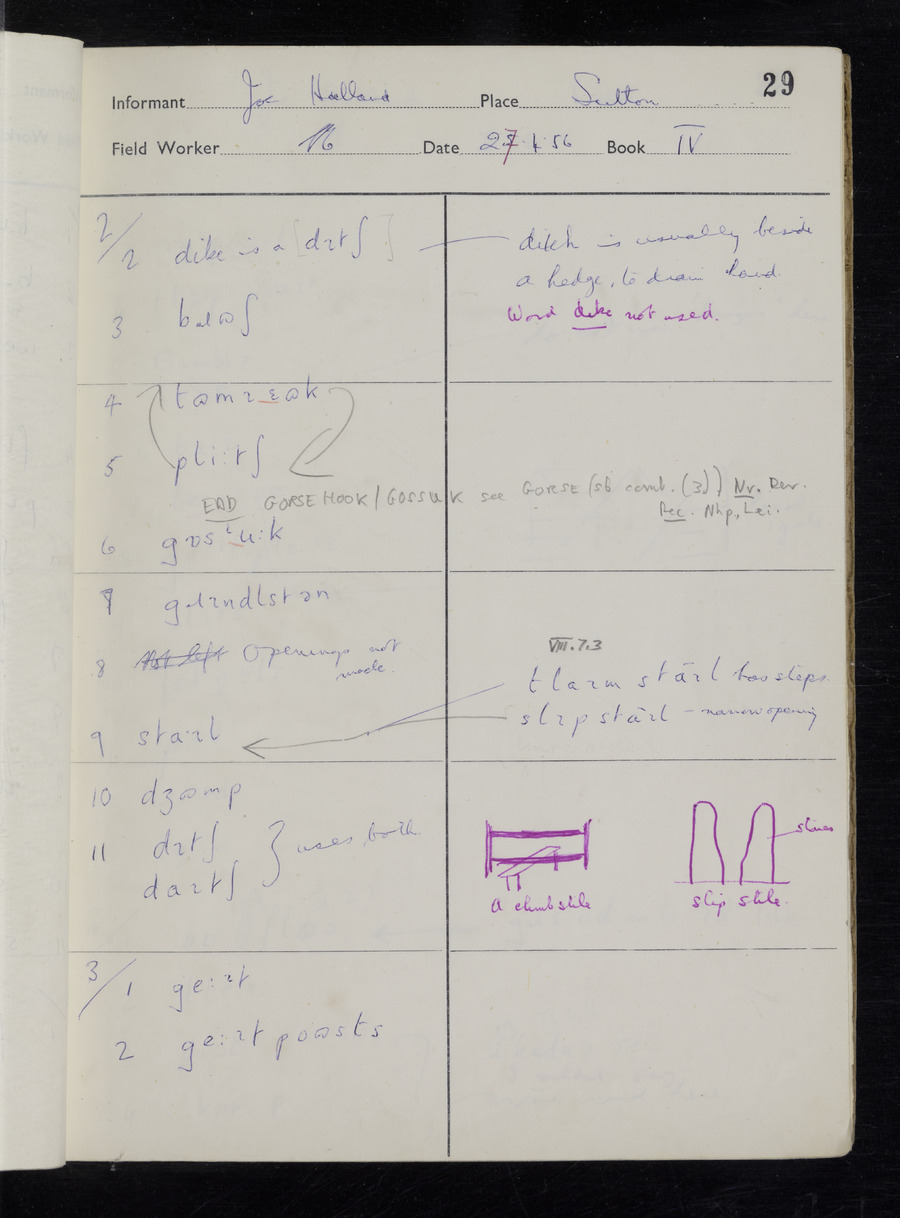 29
Informant Joe Holland Place Sutton
Field Worker Date 27.4.56 Book IV
2/2 dike is a [dɪtʃ] ditch is usually beside
a hedge, to drain land.
3 Word dike not used.
4
5 pliːtʃ
EDD GORSE HOOK/GOSSUK see GORSE (sb comb. (3)) Nr. Der.
Rec. Nhp., Lei.
6
7
8 Not left Openings not
made.
VIII.7.3
has steps.
– narrow opening
9
10 dʒɷmp
11 dɪtʃ } uses both
daɪtʃ
stones
A climb stile slip stile.
3/1 geːɪt
2 geːɪt poɷsts